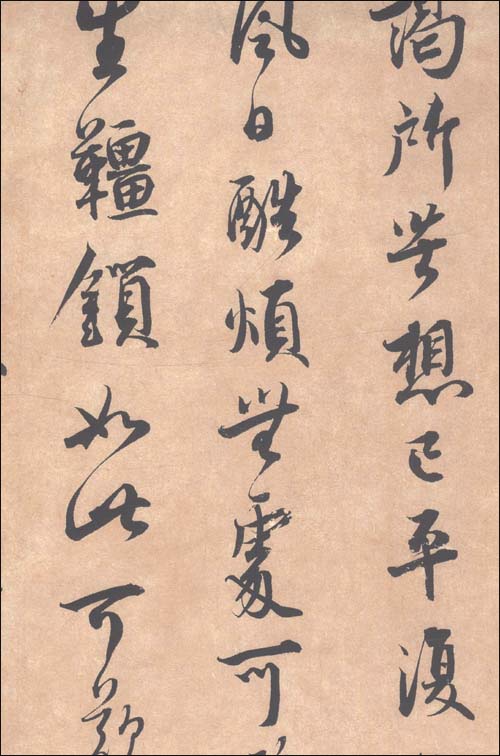 謁所苦想已平復
風日酷煩無處可
生韁鎖如此可歎